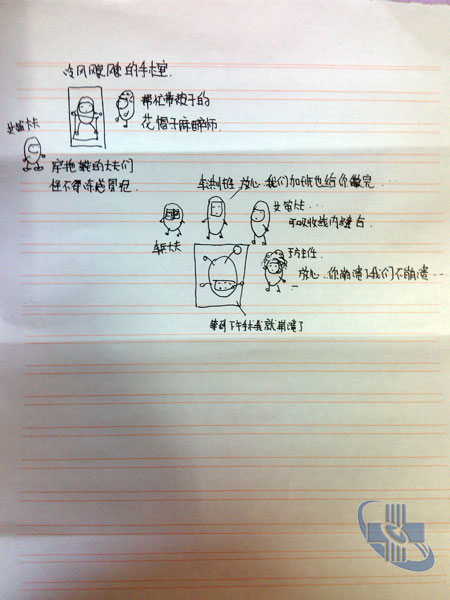 冷风飕飕的手术室
帮忙带被子的
花帽子麻醉师
大夫
穿拖鞋的大夫们
怪不得冻感冒了
放心 我们加班也给你做完...
大夫...
可吸收线内缝合
主任
放心 你崩溃了我们不崩溃...
大夫
等到下午手术我就崩溃了